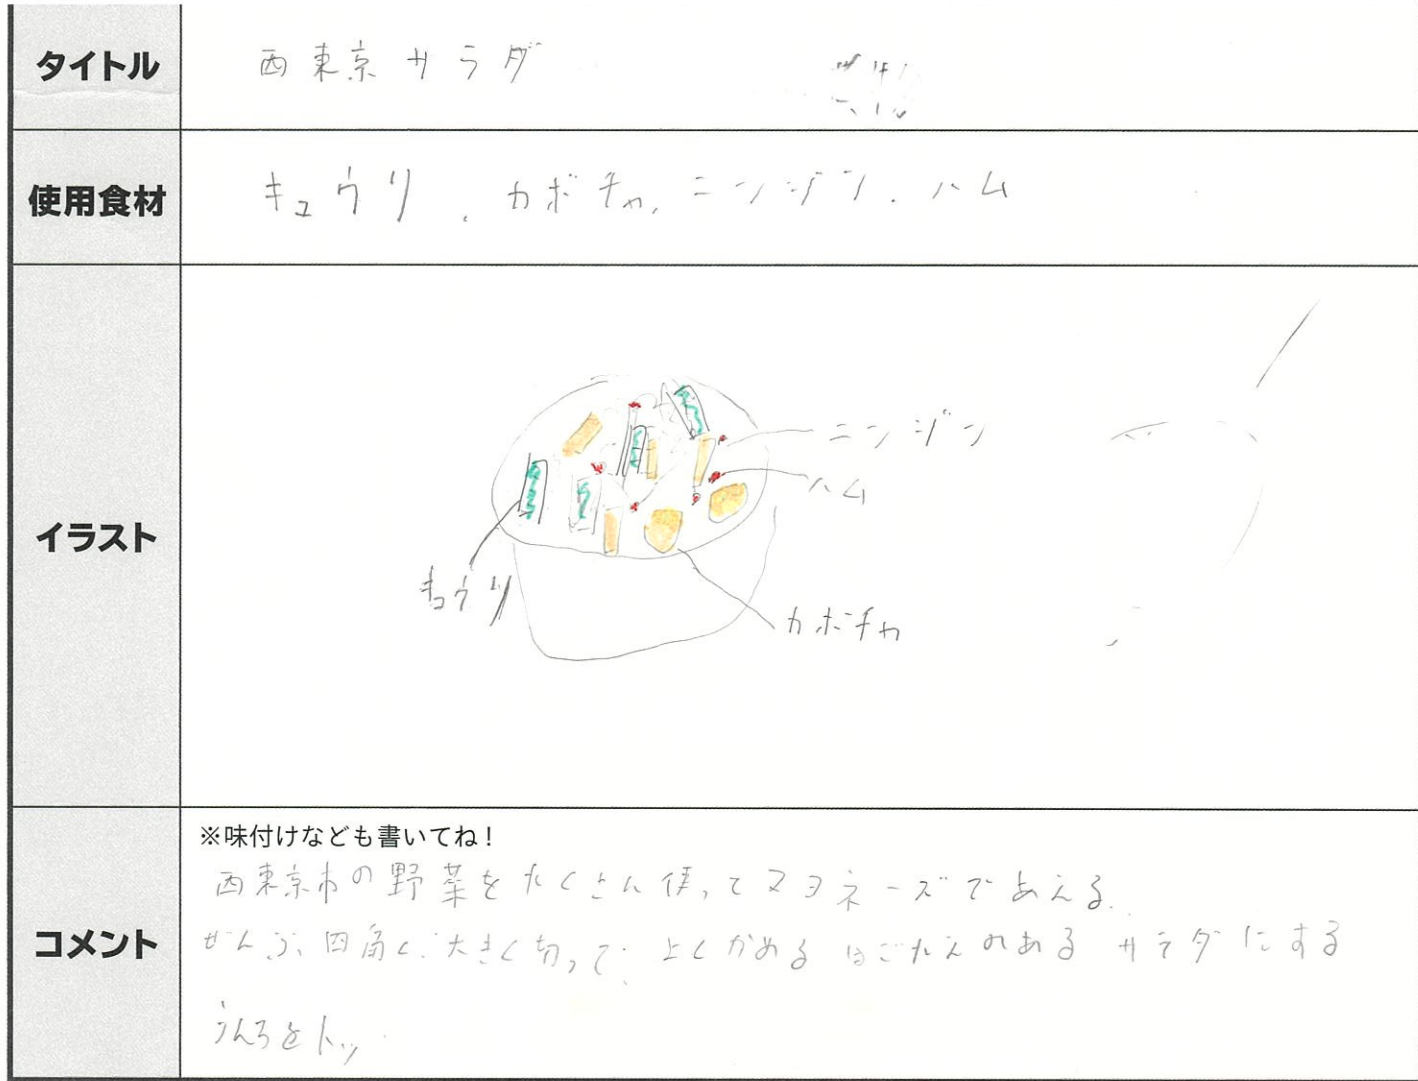 タイトル
西東京サラダ
使用食材
キュウリ、カボチャ、ニンジン、ハム
イラスト
ニンジン
ハム
キュウリ
カボチャ
コメント
※味付けなども書いてね！
西東京市の野菜をたくさん使ってマヨネーズであえる。
ぜんぶ四角く、大きく切って、よくかめるはごたえのあるサラダにする